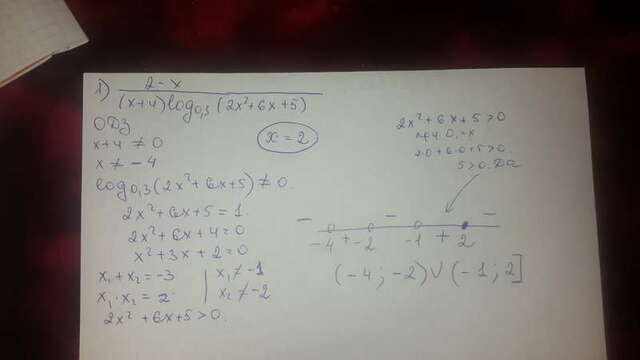 1) 2-x / (x+4)log0,3(2x²+6x+5)
ОДЗ
x+4 ≠ 0
x ≠ -4
log0,3(2x²+6x+5) ≠ 0.
2x²+6x+5=1.
2x²+6x+4=0
x²+3x+2=0
x₁+x₂=-3 | x₁ ≠ -1
x₁·x₂=2 | x₂ ≠ -2
2x²+6x+5>0.
x=2
2x²+6x+5>0
при 0,=x
2·0+6·0+5>0.
5>0. Да
- - -
-4 + -2 -1 + 2
(-4; -2) ∨ (-1; 2]